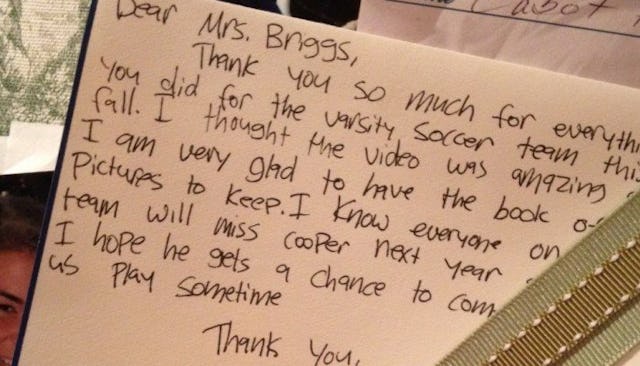 Dear Mrs. Briggs,
Thank you so much for everythi
you did for the varsity soccer team this
fall. I thought the video was amazing
I am very glad to have the book o
Pictures to keep. I know everyone on
team will miss Cooper next year
I hope he gets a chance to com
us play sometime
Thank you,